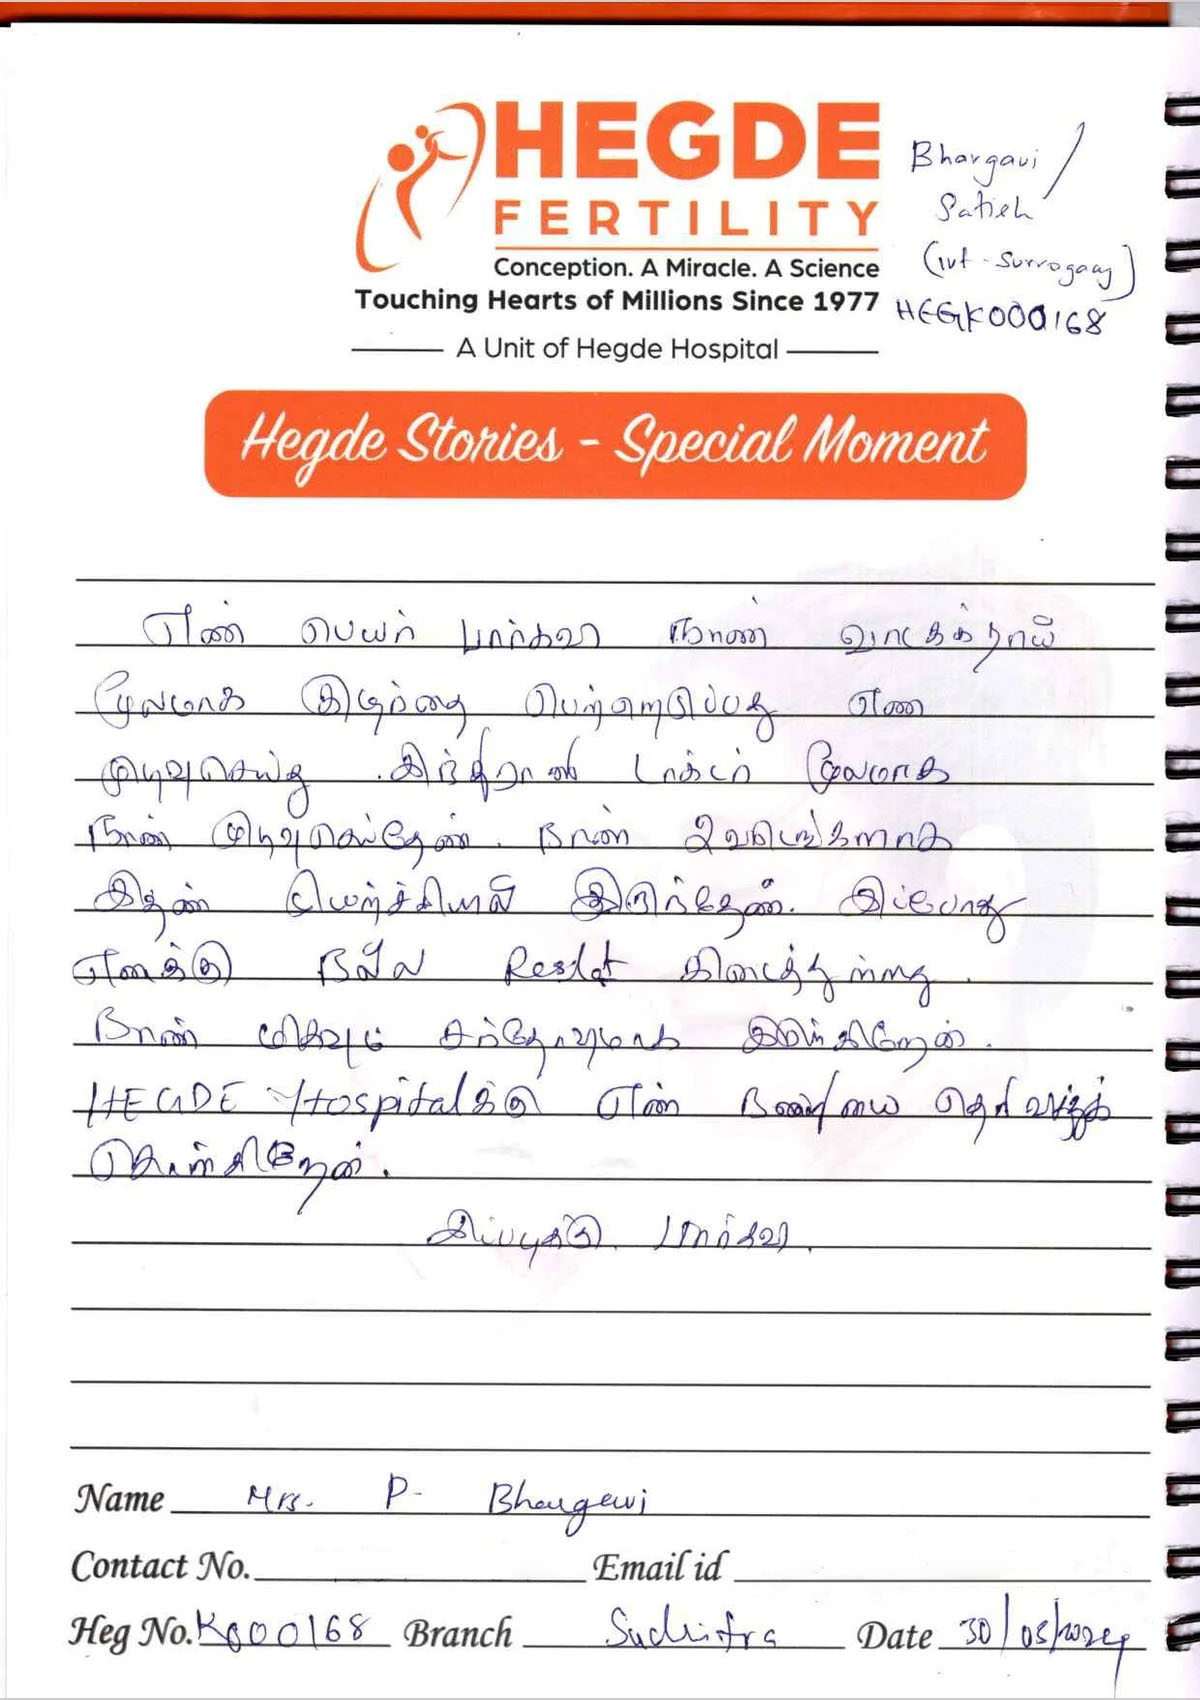 HEGDE
FERTILITY
Conception. A Miracle. A Science
Touching Hearts of Millions Since 1977
A Unit of Hegde Hospital
Bhargavi /
Satish
(ivf - Surrogacy)
HEGK000168
Hegde Stories - Special Moment
என் பெயர் பார்கவி நான் வாடகைத்தாய்
மூலமாக குழந்தை பெற்றெடுப்பது என
முடிவுசெய்து . டாக்டர் மூலமாக
நான் முடிவுசெய்தேன் . நான்
இதன் முயற்சியால் இருந்தேன். இப்போது
எனக்கு நல்ல கிடைத்துள்ளது .
நான் மிகவும் சந்தோஷமாக இருக்கிறேன் .
HEGDE Hospitalக்கு என் நன்றியை தெரிவித்துக்
கொள்கிறேன் .
இப்படிக்கு பார்கவி .
Name Mrs. P- Bhargavi
Contact No. Email id
Heg No. K000168 Branch Suchitra Date 30/05/2024